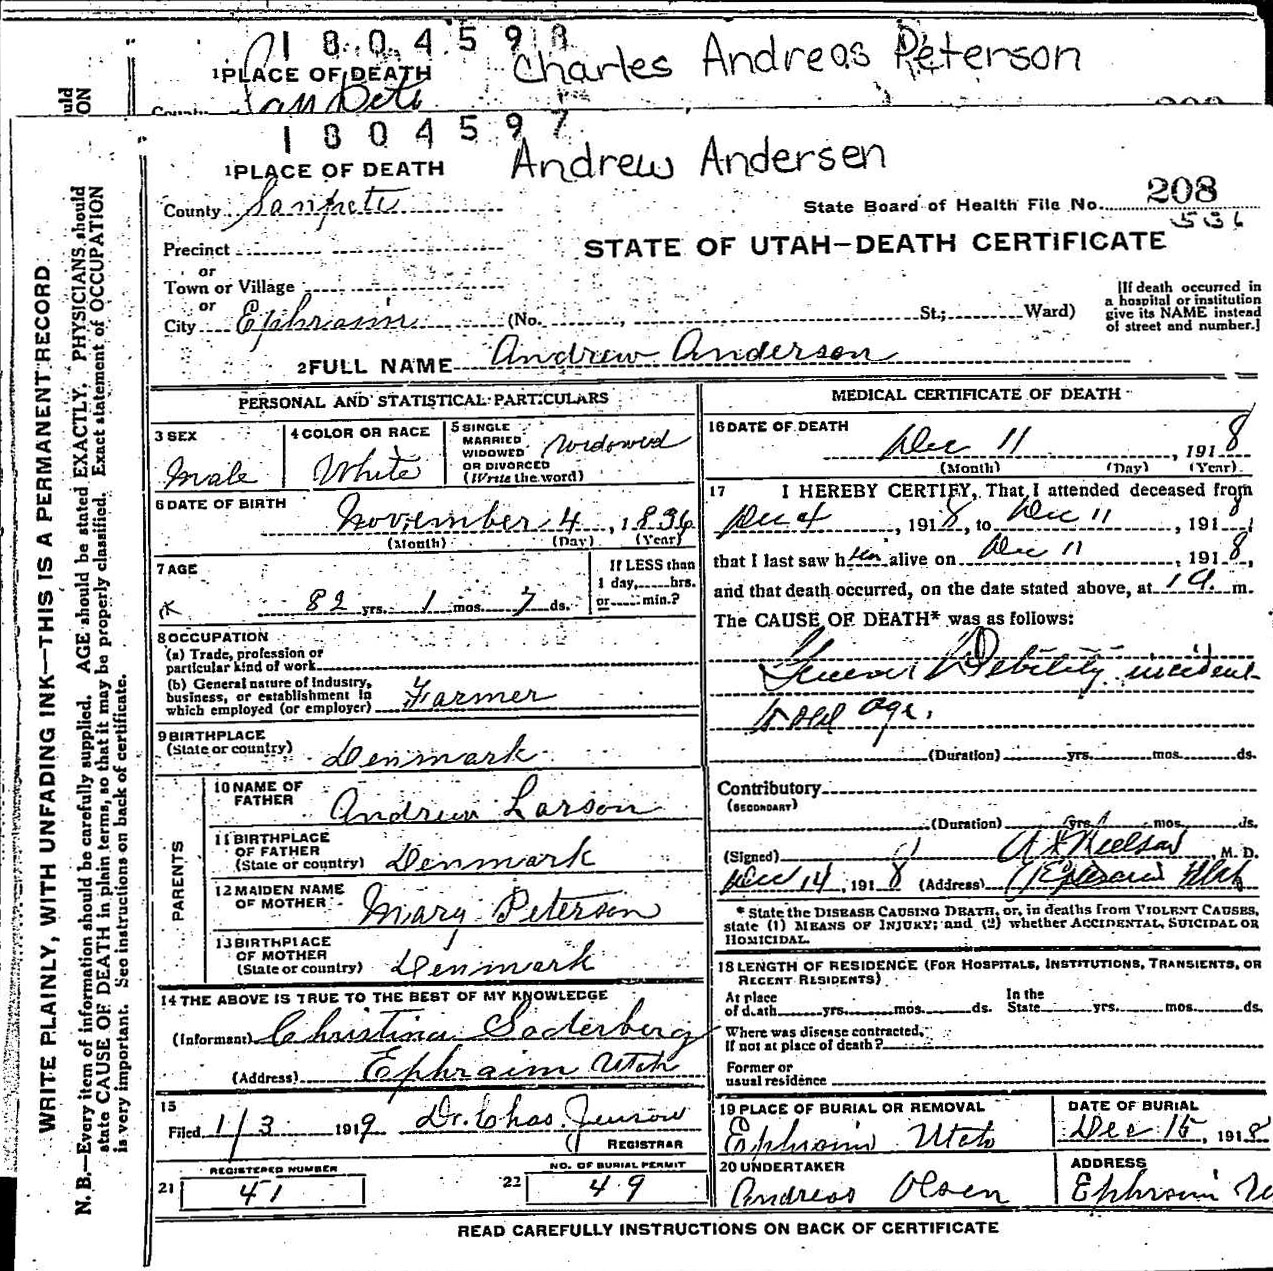 1804598
Charles Andreas Peterson
1 PLACE OF DEATH
County
1804597
Andrew Andersen
1 PLACE OF DEATH
County Sanpete
State Board of Health File No. 208
536
Precinct
STATE OF UTAH—DEATH CERTIFICATE
or
Town or Village
or
City Ephraim (No. , St.; Ward)
[If death occurred in a hospital or institution give its NAME instead of street and number.]
2 FULL NAME Andrew Anderson
PERSONAL AND STATISTICAL PARTICULARS
3 SEX
Male
4 COLOR OR RACE
White
5 SINGLE MARRIED WIDOWED OR DIVORCED (Write the word)
Widowed
6 DATE OF BIRTH
November 4, 1836
(Month) (Day) (Year)
7 AGE
82 yrs. 1 mos. 7 ds.
If LESS than 1 day, hrs. or min.?
8 OCCUPATION
(a) Trade, profession or particular kind of work
(b) General nature of Industry, business, or establishment in which employed (or employer) Farmer
9 BIRTHPLACE
(State or country) Denmark
PARENTS
10 NAME OF FATHER Andrew Larson
11 BIRTHPLACE OF FATHER (State or country) Denmark
12 MAIDEN NAME OF MOTHER Mary Peterson
13 BIRTHPLACE OF MOTHER (State or country) Denmark
14 THE ABOVE IS TRUE TO THE BEST OF MY KNOWLEDGE
(Informant) Christina Soderberg
(Address) Ephraim Utah
15
Filed 1/3 1919 Dr. Chas. Jenson
REGISTRAR
REGISTERED NUMBER
21 41
NO. OF BURIAL PERMIT
22 49
MEDICAL CERTIFICATE OF DEATH
16 DATE OF DEATH
Dec 11, 1918
(Month) (Day) (Year)
17 I HEREBY CERTIFY, That I attended deceased from
Dec 4, 1918, to Dec 11, 1918
that I last saw him alive on Dec 11, 1918,
and that death occurred, on the date stated above, at 1 a. m.
The CAUSE OF DEATH* was as follows:
General Debility incident
to old age.
(Duration) yrs. mos. ds.
Contributory
(SECONDARY)
(Duration) yrs. mos. ds.
(Signed) Nielson, M. D.
Dec 14, 1918 (Address) Ephraim Utah
* State the DISEASE CAUSING DEATH, or, in deaths from VIOLENT CAUSES,
state (1) MEANS OF INJURY; and (2) whether ACCIDENTAL, SUICIDAL OR
HOMICIDAL.
18 LENGTH OF RESIDENCE (FOR HOSPITALS, INSTITUTIONS, TRANSIENTS, OR
RECENT RESIDENTS)
At place of death yrs. mos. ds. In the State yrs. mos. ds.
Where was disease contracted,
If not at place of death?
Former or
usual residence
19 PLACE OF BURIAL OR REMOVAL
Ephraim Utah
DATE OF BURIAL
Dec 15, 1918
20 UNDERTAKER
Andreas Olsen
ADDRESS
Ephraim
READ CAREFULLY INSTRUCTIONS ON BACK OF CERTIFICATE
WRITE PLAINLY, WITH UNFADING INK—THIS IS A PERMANENT RECORD
N. B.—Every item of information should be carefully supplied. AGE should be stated EXACTLY. PHYSICIANS should
state CAUSE OF DEATH in plain terms, so that it may be properly classified. Exact statement of OCCUPATION
is very important. See instructions on back of certificate.